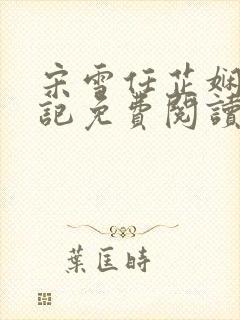 宋雪任芷嫻
記免費閱讀
葉匡時